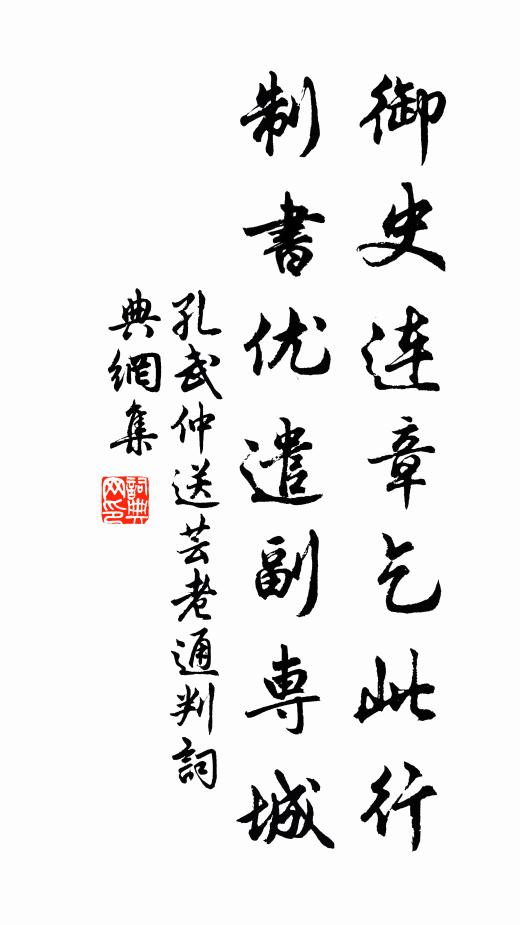 御史连章乞此行
制书优遣副专城
孔武仲送芸老通判词
典网集
词典网印